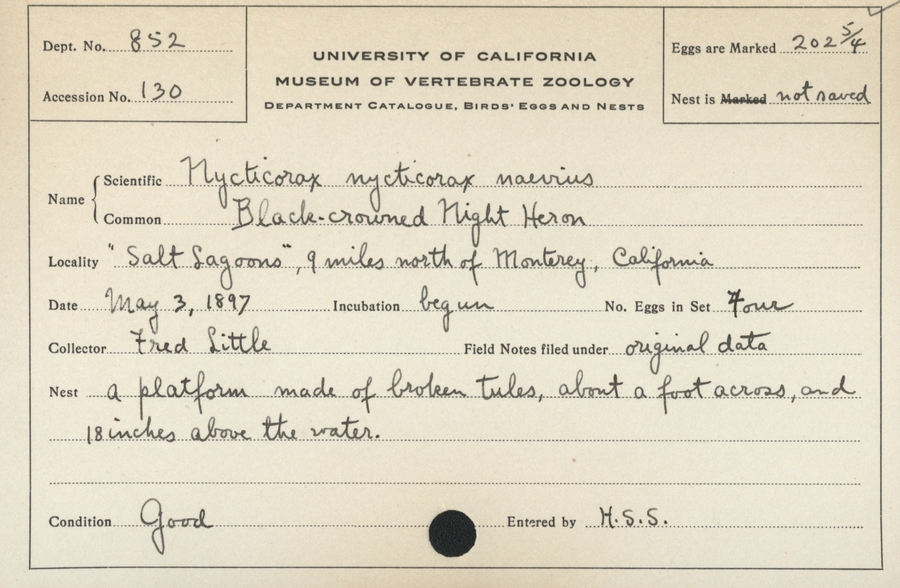 Dept. No. 852
Accession No. 130
UNIVERSITY OF CALIFORNIA
MUSEUM OF VERTEBRATE ZOOLOGY
DEPARTMENT CATALOGUE, BIRDS' EGGS AND NESTS
Eggs are Marked 202 5/4
Nest is Marked not saved
Name
Scientific Nycticorax nycticorax naevius
Common Black-crowned Night Heron
Locality "Salt Lagoons", 9 miles north of Monterey, California
Date May 3, 1897 Incubation begun No. Eggs in Set Four
Collector Fred Little Field Notes filed under original data
Nest a platform made of broken tules, about a foot across, and
18 inches above the water.
Condition Good Entered by H.S.S.